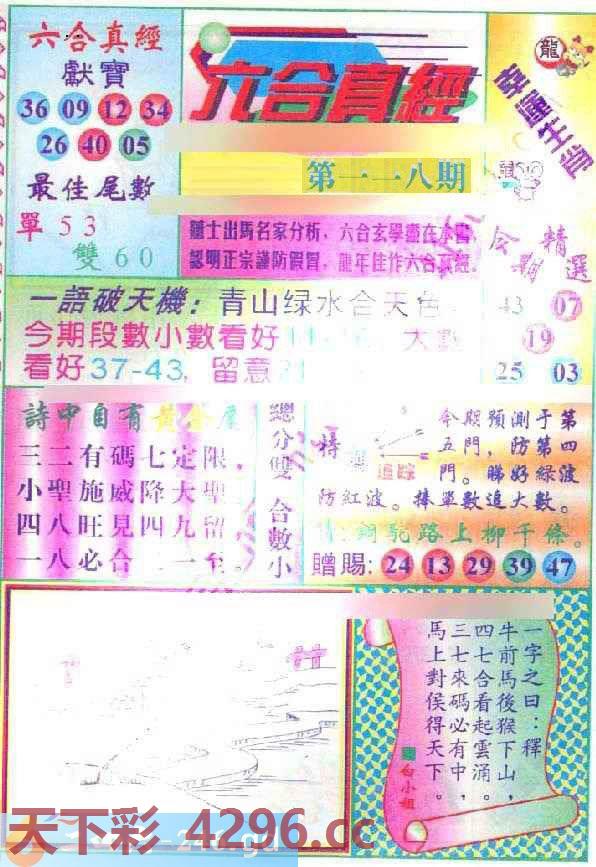 六合真經
獻寶
36 09 12 34
26 40 05
最佳尾數
單 53
雙 60
六合真經
第一一八期
龍
鼠
隱士出馬名家分析，六合玄學盡在本書
認明正宗謹防假冒，龍年佳作六合真經.
精
選
43 07
19
25 03
一語破天機：青山绿水合天色
今期段數小數看好 大數
看好37-43, 留意
詩中自有黃金屋
三二有碼七定限，
小聖施威降大聖
四八旺見四九留
一八必合二一至。
總分雙
合數小
追踪
今期預測于第
五門，防第四
門。睇好綠波
防紅波。捧單數追大數。
銅駝路上柳千條。
贈賜: 24 13 29 39 47
一字之曰：釋
牛前馬後猴下山，
四七合看起雲涌。
三七來碼必有中，
馬上對侯得天下。
白小姐
天下彩 4296.cc